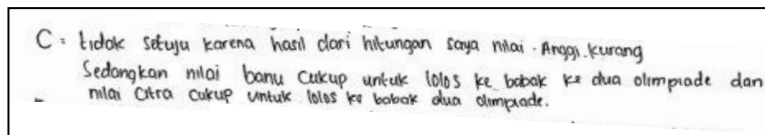 C : tidak setuju karena hasil dari hitungan saya nilai . Anggi . kurang
Sedangkan nilai banu cukup untuk lolos ke babak ke dua olimpiade dan
nilai Citra cukup untuk lolos ke babak dua olimpiade.